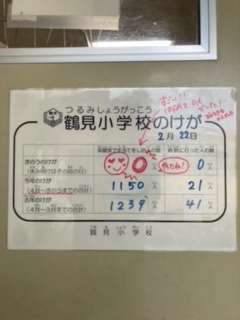 つるみしょうがっこう
鶴見小学校のけが
2月22日
すごい!!
保健室で手当てをした人の数
病院に行った人の数
きのうのけが
0人
やったね!
0人
今年のけが
(4月〜きのうまでの合計)
1150人
21人
去年のけが
(4月〜3月までの合計)
1239人
41人
鶴見小学校